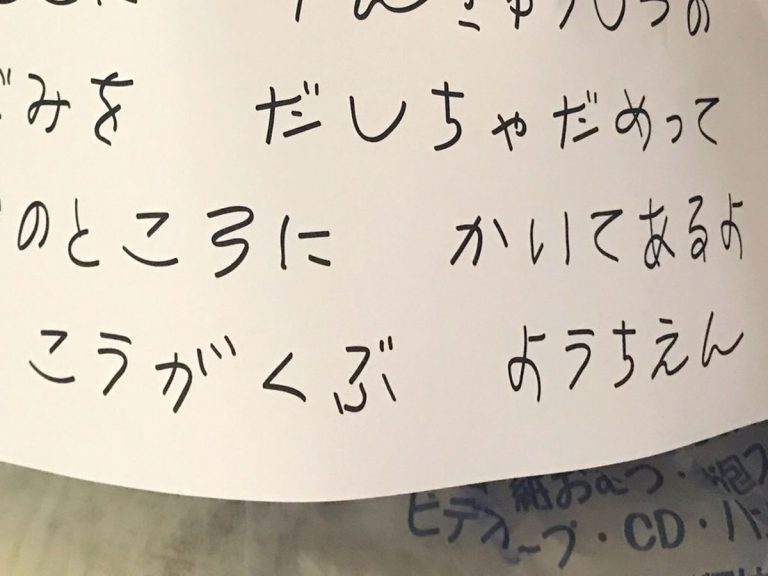 けんきゅうしつの
ごみを　だしちゃだめって
のところに　かいてあるよ
こうがくぶ　ようちえん
紙おむつ・泡ス
ビデオテープ・CD・バ